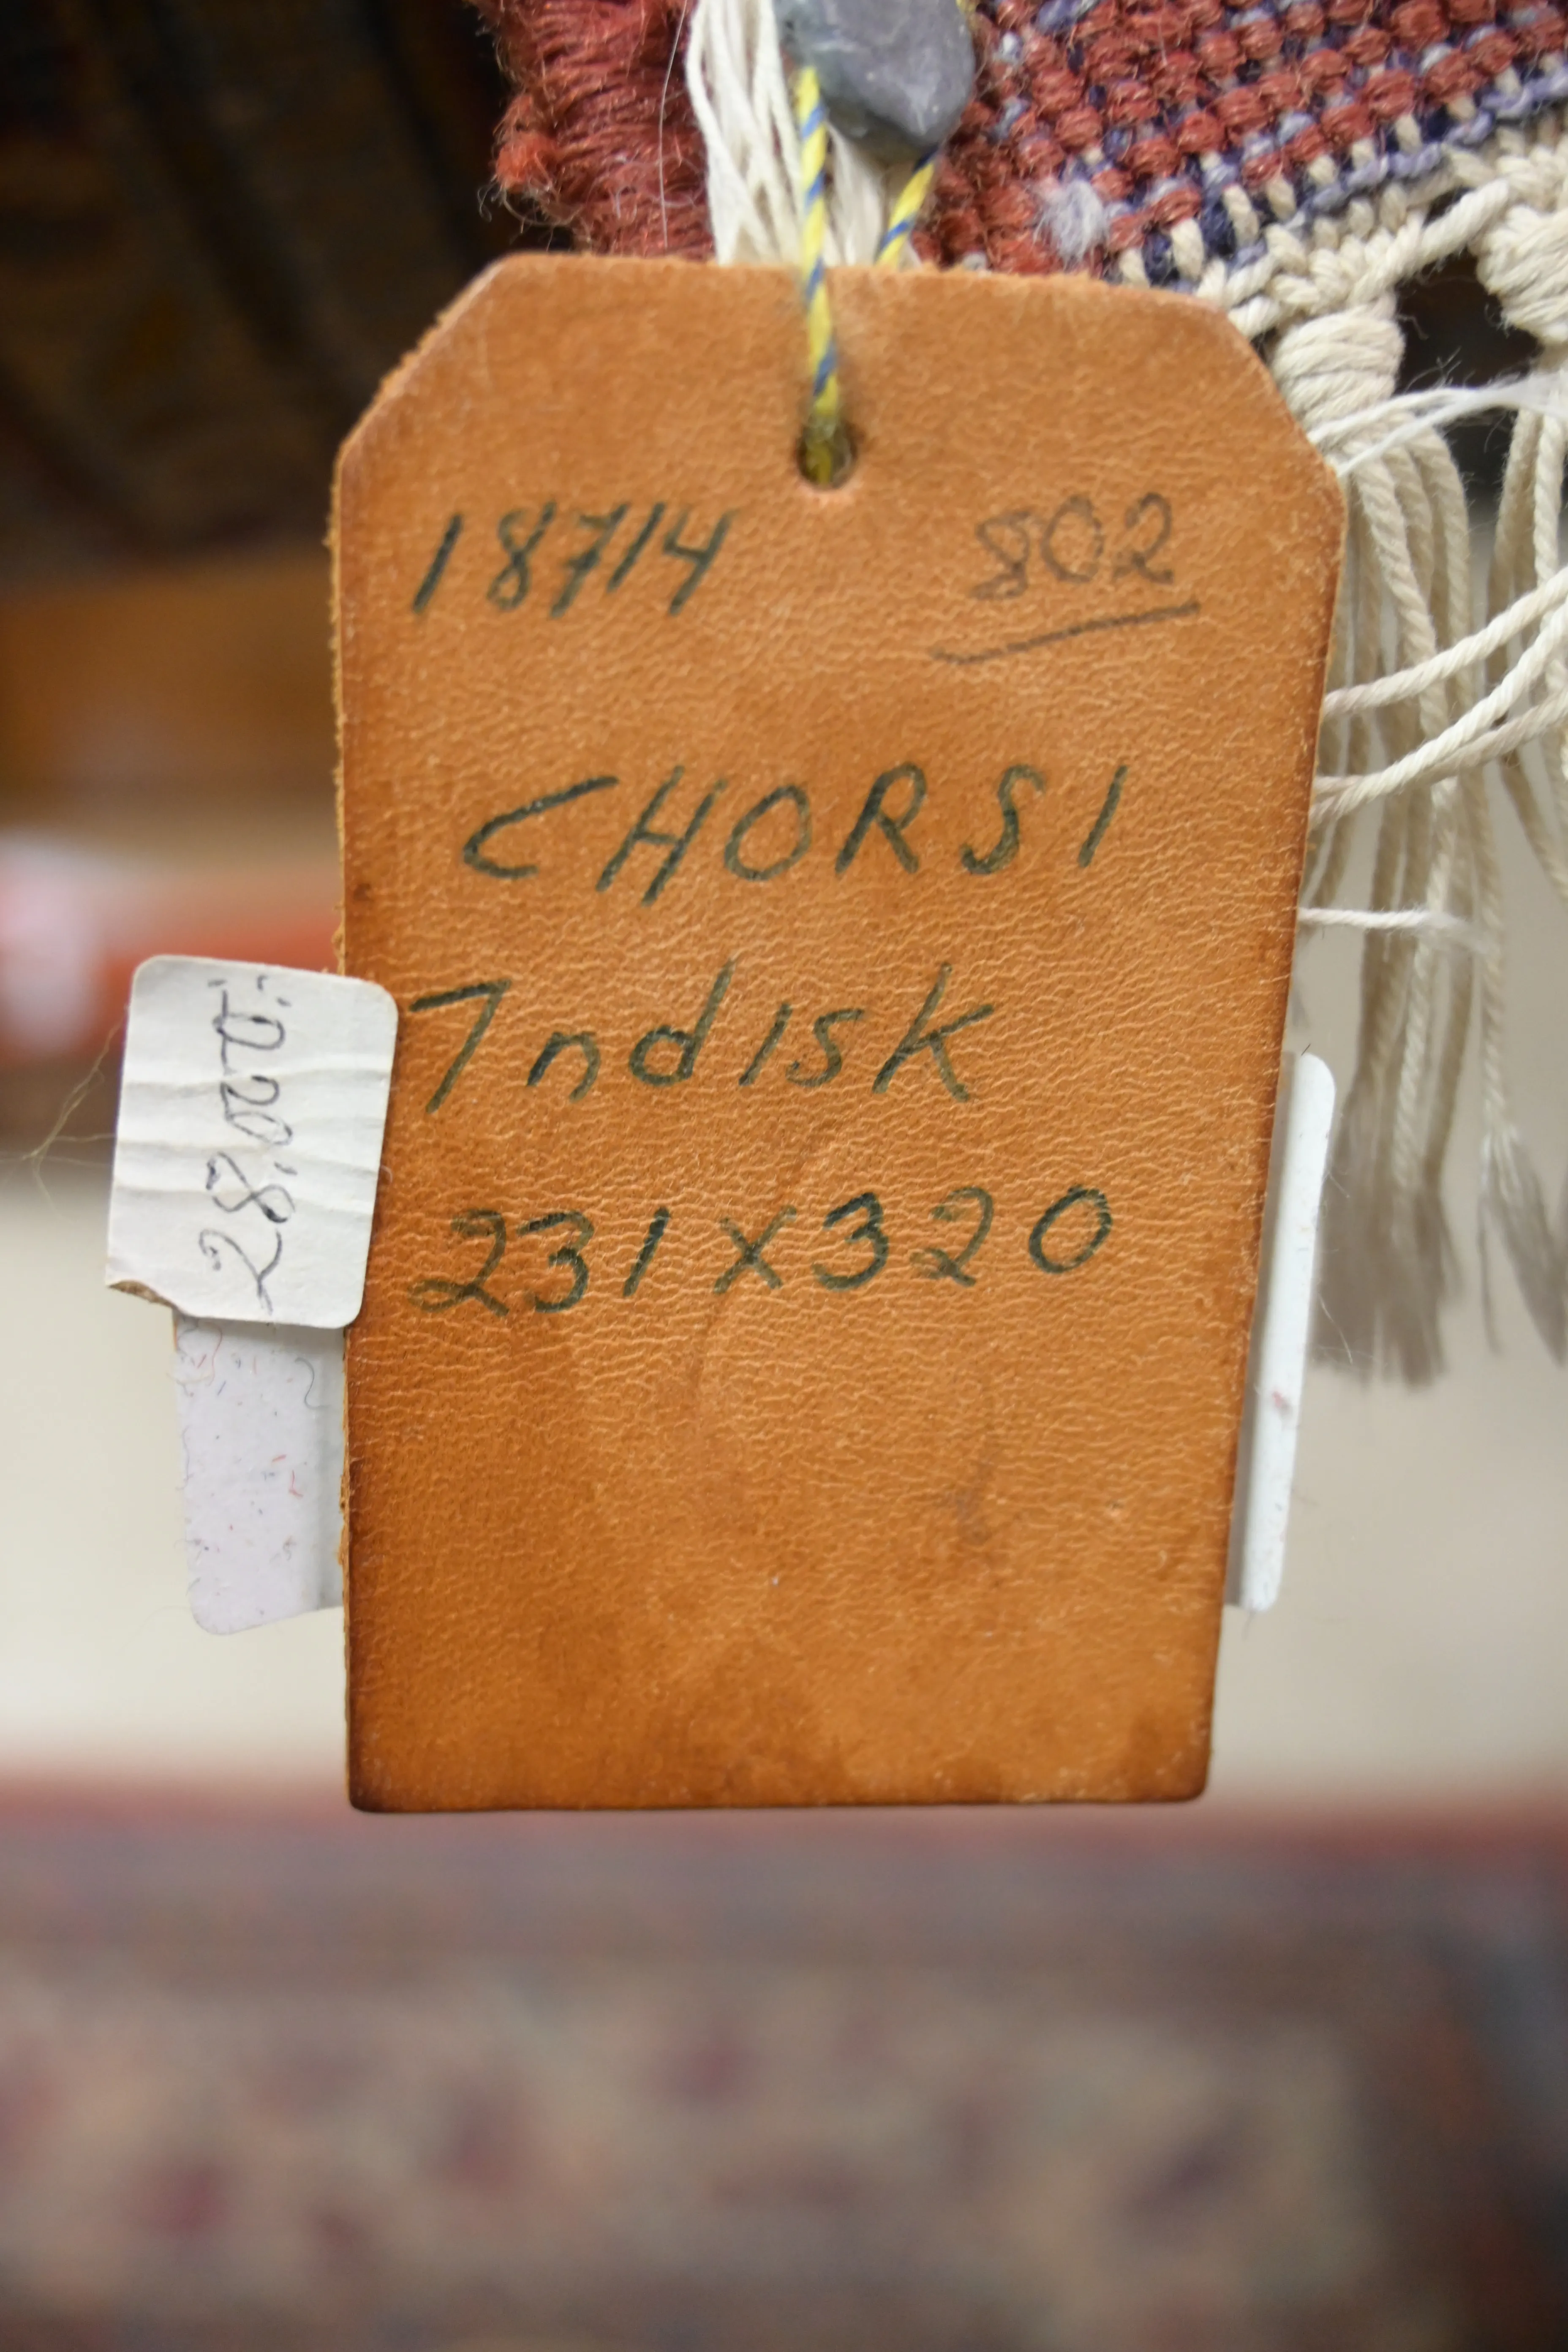 18714 802
CHORSI
Indisk
231x320
28.020: